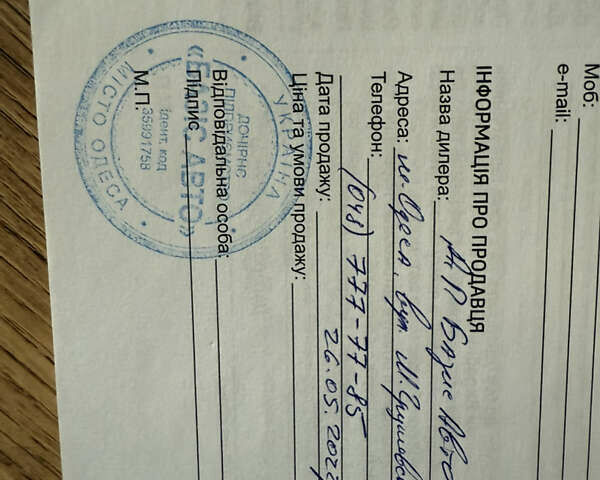 Моб:
e-mail:
ІНФОРМАЦІЯ ПРО ПРОДАВЦЯ
Назва дилера: ДП Базис Авто
Адреса: м. Одеса, вул. М. Грушевсь
Телефон: (048) 777-77-85
Дата продажу: 26.05.202
Ціна та умови продажу:
Відповідальна особа:
Підпис
М.П.
УКРАЇНА
МІСТО ОДЕСА
ДОЧІРНЄ
ПІДПРИЄМСТВО
«БАЗІС АВТО»
Ідент. код
35991758